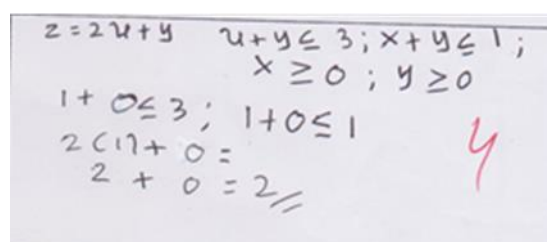 z = 2x + y x + y ≤ 3 ; x + y ≤ 1 ;
x ≥ 0 ; y ≥ 0
1 + 0 ≤ 3 ; 1 + 0 ≤ 1
2 (1) + 0 =
2 + 0 = 2
4